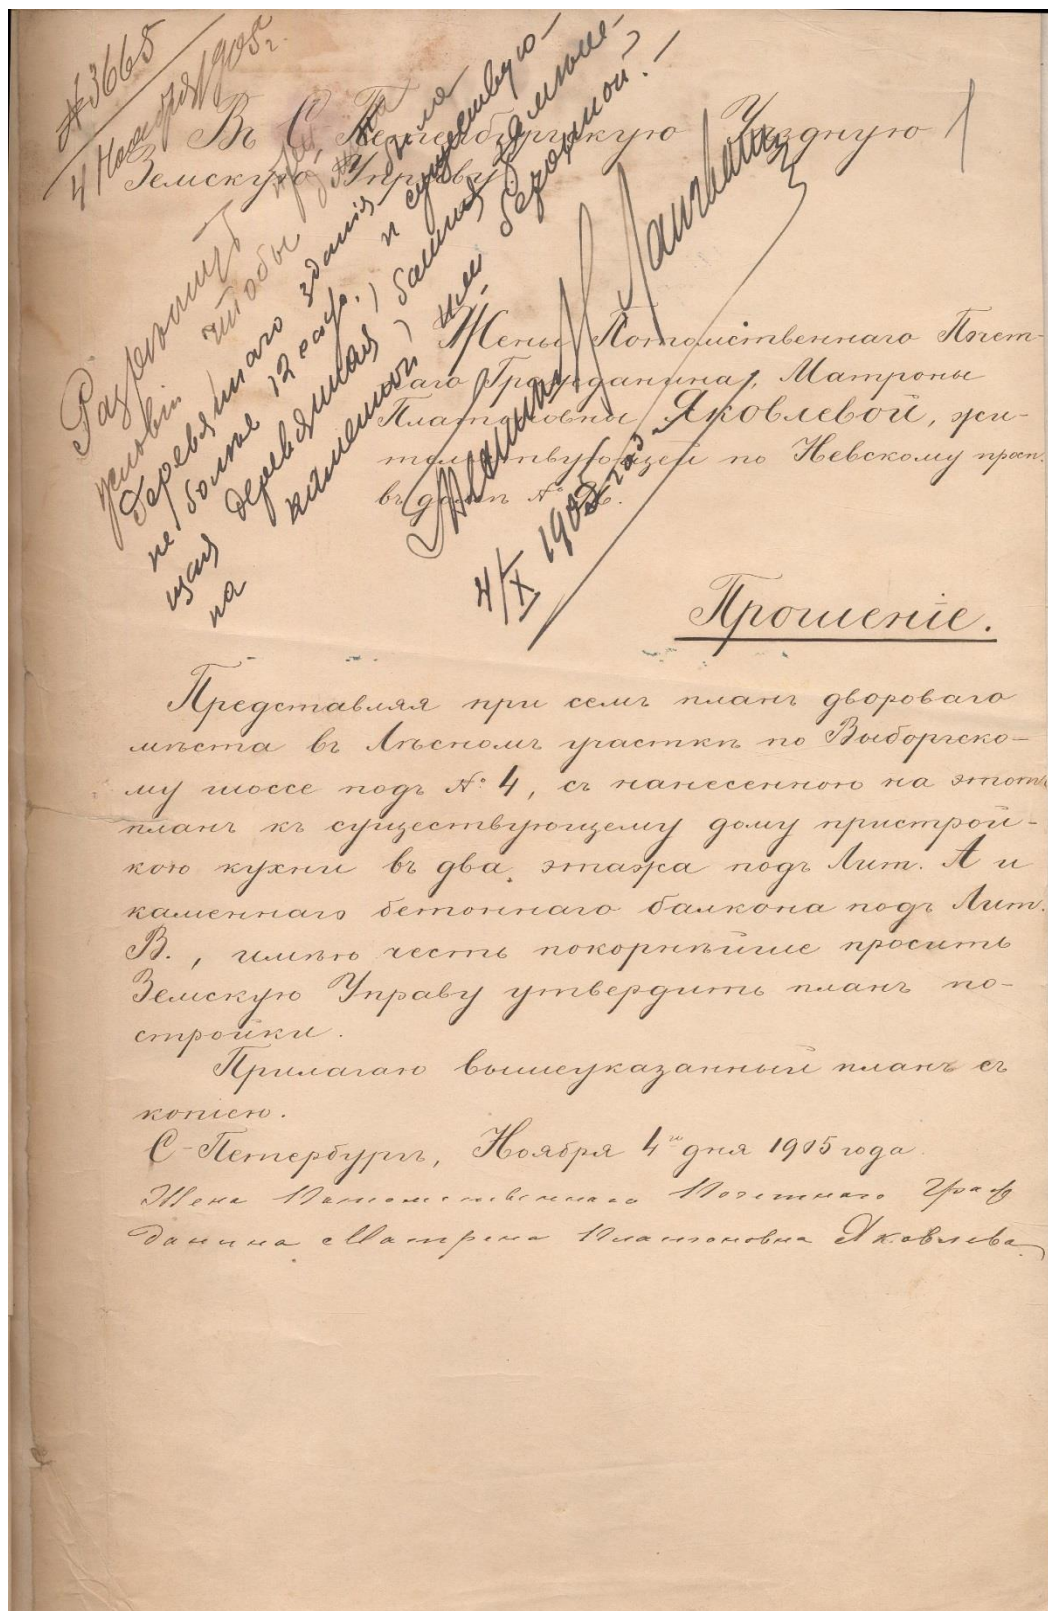 № 3665
4 Ноября 1905 г.
1
Въ С. Петербургскую Уѣздную
Земскую Управу
Разрѣшить при
условіи чтобы длина
деревяннаго зданія была
не болѣе 12 саж., и существую-
щая деревянная башня замѣне-
на каменной, или безопасной.
4/X 1905 года
Жены Потомственнаго Почет-
наго Гражданина, Матроны
Платоновны Яковлевой, жи-
тельствующей по Невскому просп.
въ домѣ №
Прошеніе.
Представляя при семъ планъ двороваго
мѣста въ Лѣсномъ участкѣ по Выборгско-
му шоссе подъ № 4, съ нанесенною на этотъ
планъ къ существующему дому пристрой-
кою кухни въ два этажа подъ Лит. А и
каменнаго бетоннаго балкона подъ Лит.
В., имѣю честь покорнѣйше просить
Земскую Управу утвердить планъ по-
стройки.
Прилагаю вышеуказанный планъ съ
копіею.
С-Петербургъ, Ноября 4го дня 1905 года
Жена Потомственнаго Почетнаго Граж
данина Матрена Платоновна Яковлева